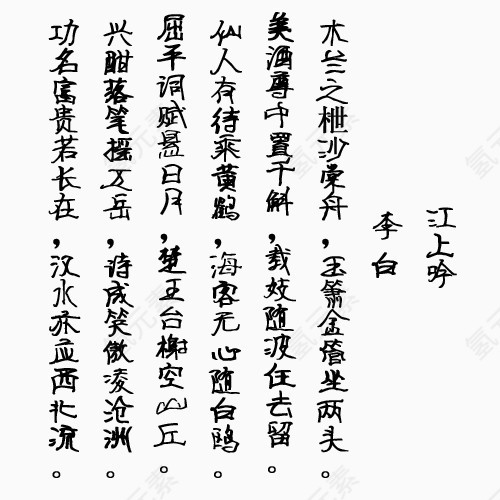 江上吟
李白
木兰之枻沙棠舟，玉箫金管坐两头。
美酒尊中置千斛，载妓随波任去留。
仙人有待乘黄鹤，海客无心随白鸥。
屈平词赋悬日月，楚王台榭空山丘。
兴酣落笔摇五岳，诗成笑傲凌沧洲。
功名富贵若长在，汉水亦应西北流。